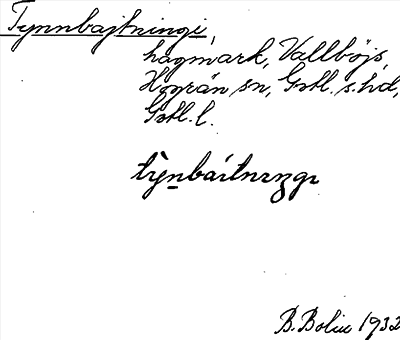 Tynnbajtningi,
hagmark, Vallböjs,
Hogrän sn, Gotl. s. hd,
Gotl. l.
B. Bolin 1932